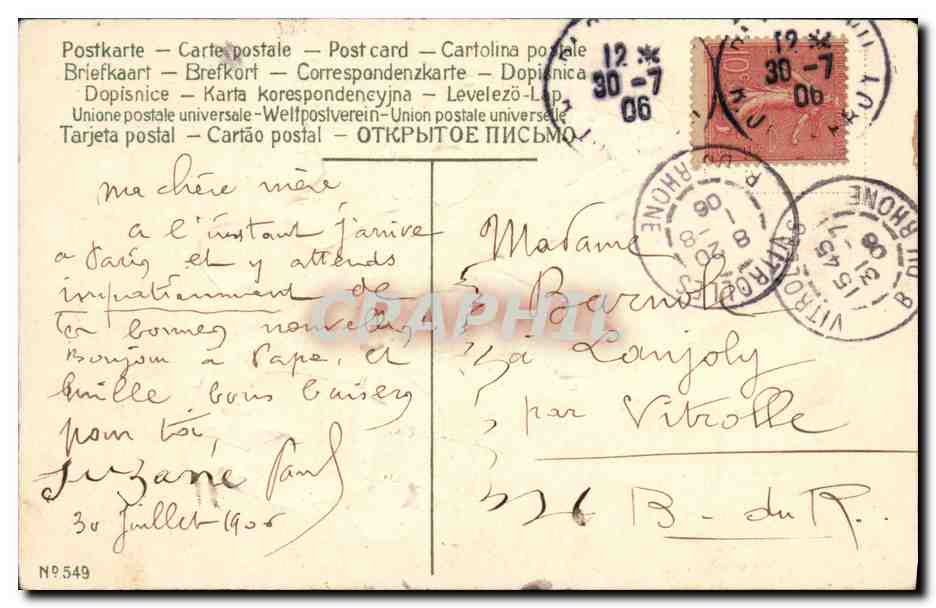 Postkarte — Carte postale — Post card — Cartolina postale
Briefkaart — Brefkort — Correspondenzkarte — Dopisnica
Dopisnice — Karta korespondencyjna — Levelező-Lap
Unione postale universale-Weltpostverein-Union postale universelle
Tarjeta postal — Cartão postal — ОТКРЫТОЕ ПИСЬМО
12 *
30 -7
06
12 *
30 -7
06
10c
VITROLLES
B. DU RHONE
20 -8
06
VITROLLES
B DU RHONE
15 45
31 -7
06
ma chère mère
a l'instant j'arrive
a Paris et y attends
impatiemment de
ta bonnes nouvelles
Bonjour a Papa, et
mille bons baisers
pour toi,
Suzane Paul
30 Juillet 1906
Madame
Barnole
à Lanjoly
par Vitrolle
B - du R.
CPARAMA
Nº 549